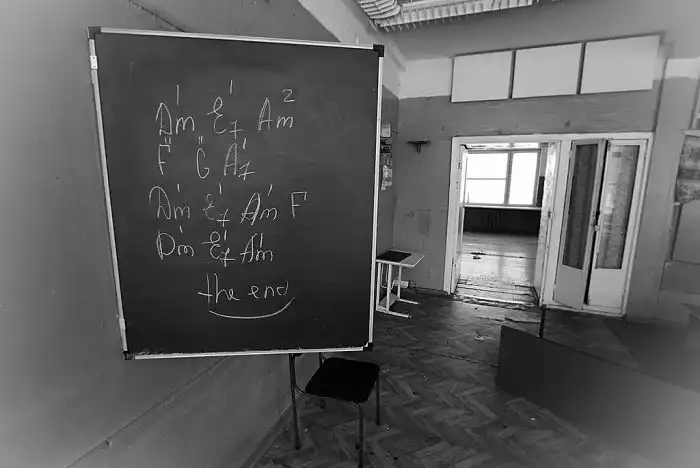 Dm¹ E₇¹ Am²
F" G" A₇¹
Dm¹ E₇¹ Am¹ F
Dm¹ E₇¹ Am¹
the end